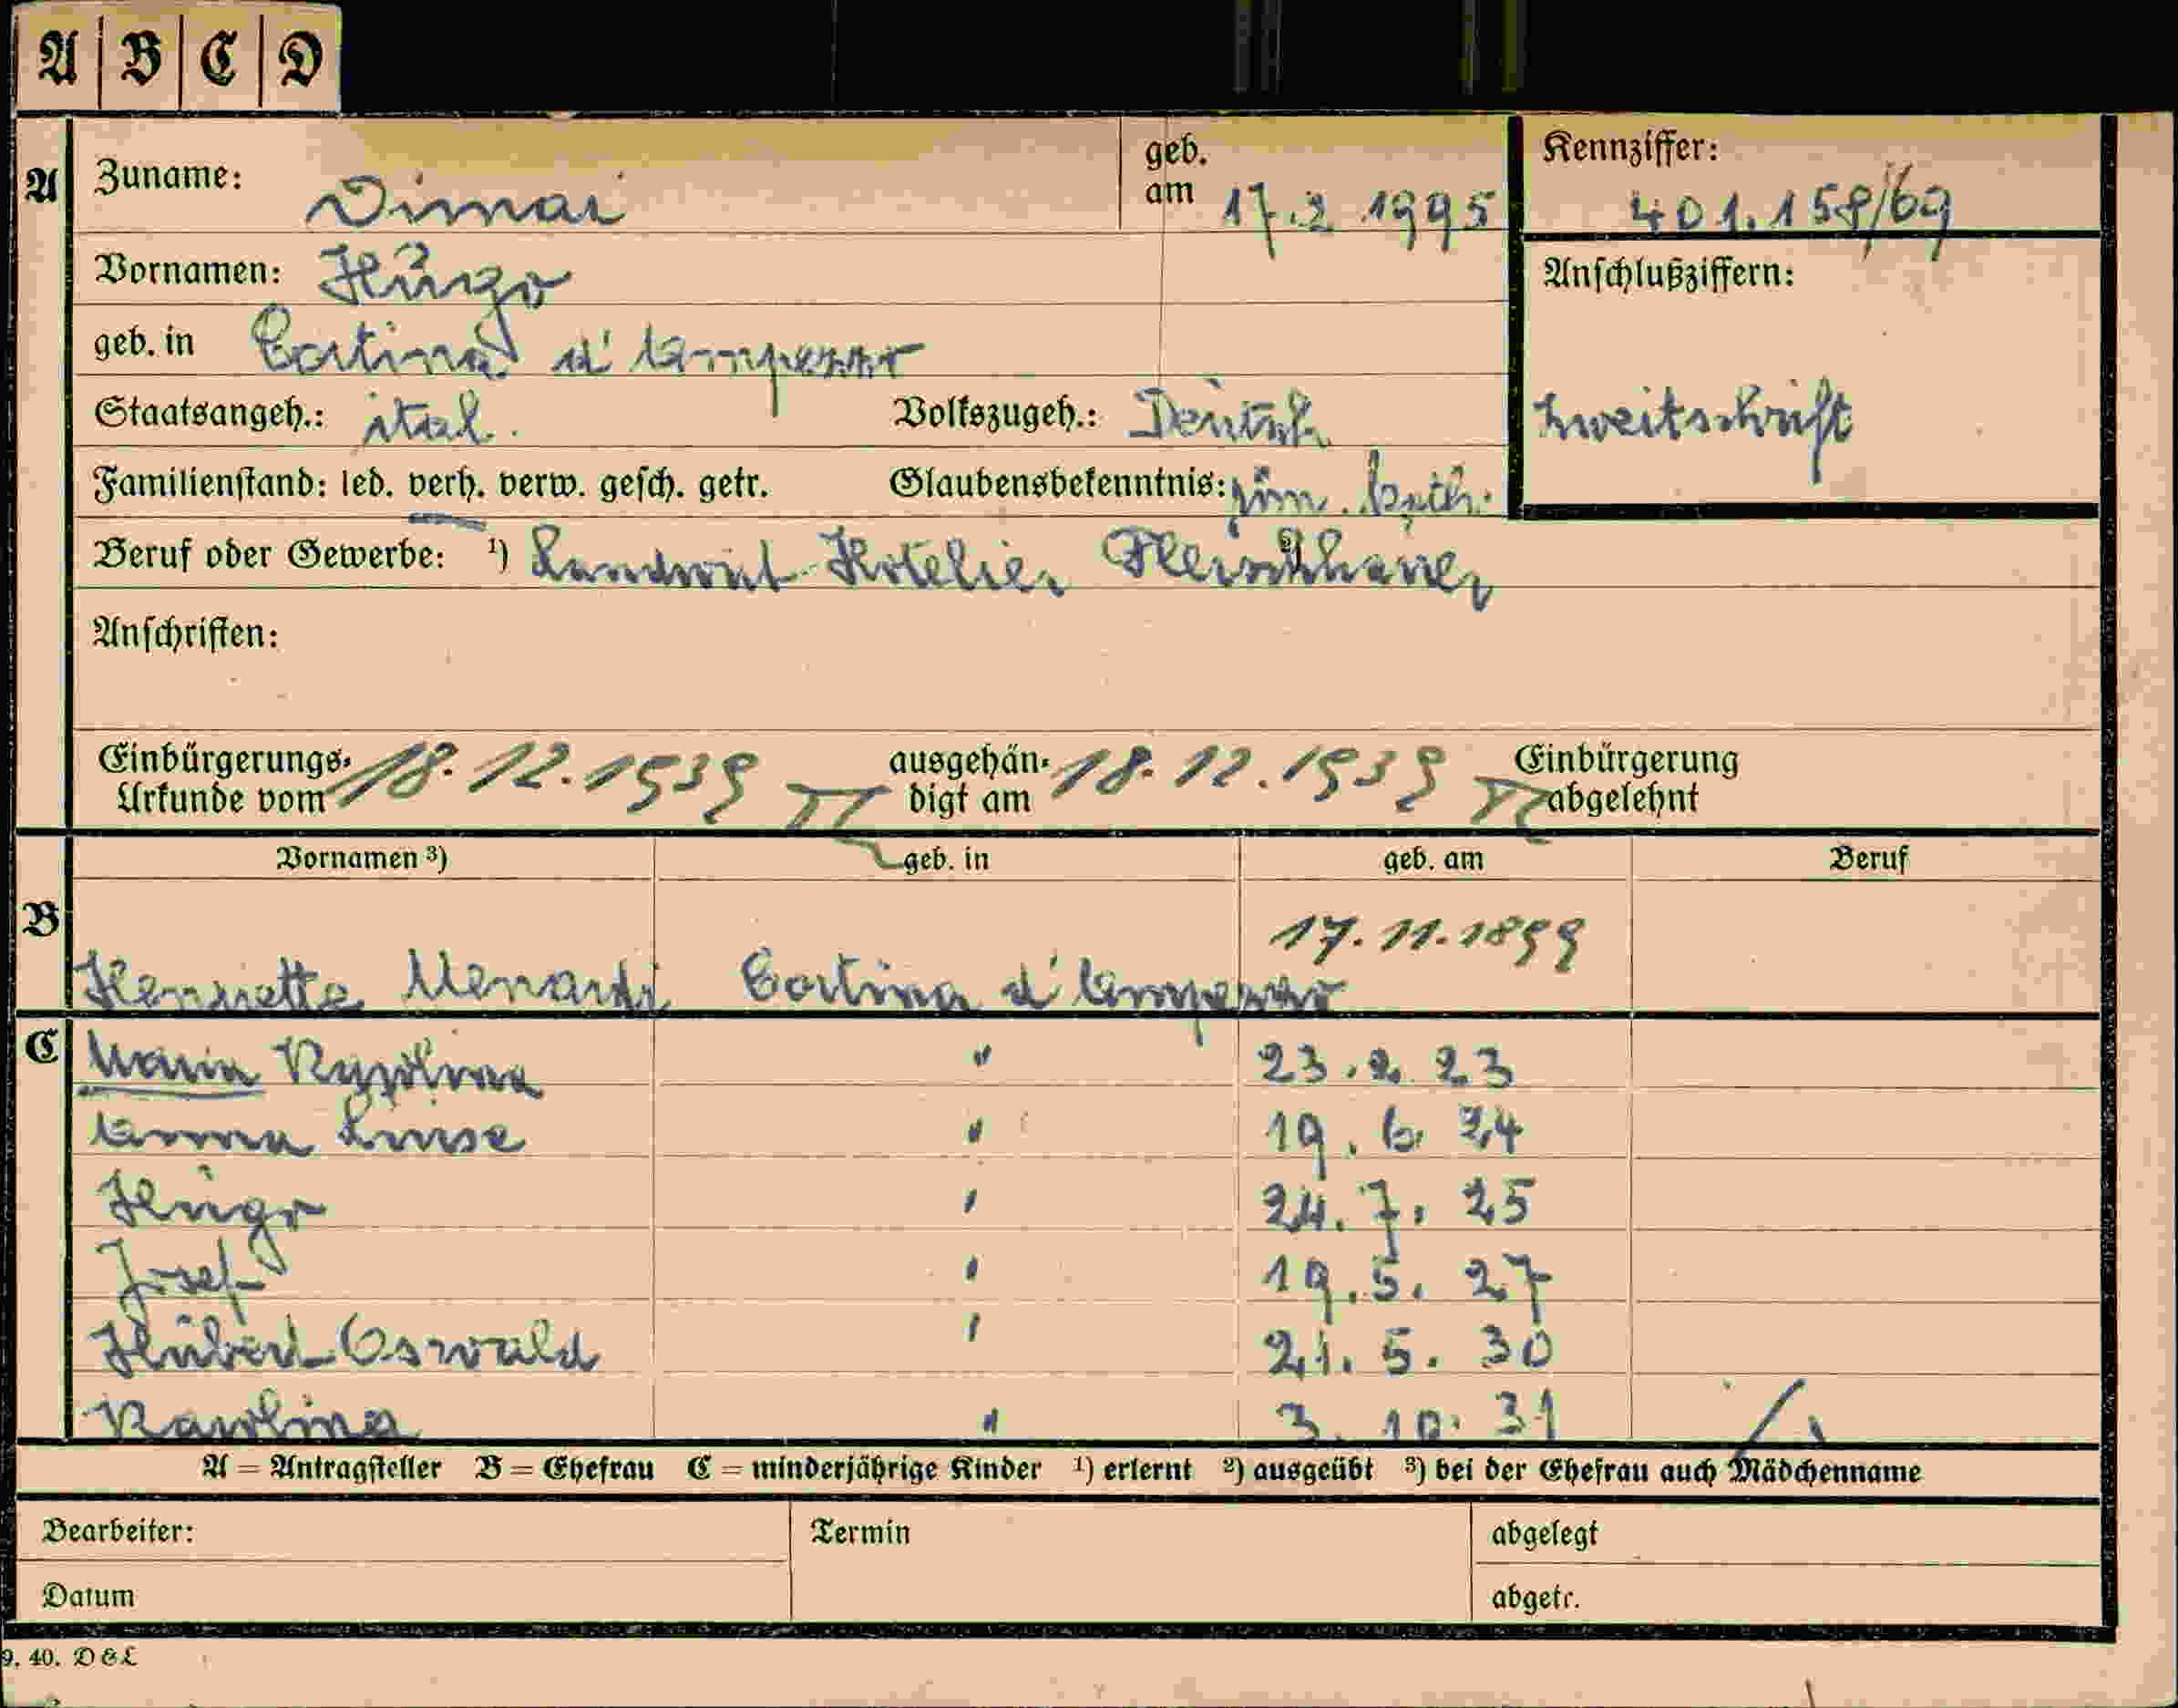 A B C D
A Zuname: Dimai geb. am 17.2 1995 Kennziffer: 401.158/69
Vornamen: Hugo Anschlußziffern:
geb. in Cortina d'Ampezzo
Staatsangeh.: ital. Volkszugeh.: Deutsch Zweitschrift
Familienstand: led. verh. verw. gesch. getr. Glaubensbekenntnis: röm. kath.
Beruf oder Gewerbe: 1) Landwirt Hotelier 2) Fleischhauer
Anschriften:
Einbürgerungs- Urkunde vom 18.12.1939 ausgehän- digt am 18.12.1939 Einbürgerung abgelehnt
Vornamen 3) geb. in geb. am Beruf
B Henriette Menardi Cortina d'Ampezzo 17.11.1899
C Maria Karolina " 23.2.23
Anna Luise " 19.6.24
Hugo " 24.7.25
Josef " 19.5.27
Hubert Oswald " 21.5.30
Karolina " 3.10.31
A = Antragsteller B = Ehefrau C = minderjährige Kinder 1) erlernt 2) ausgeübt 3) bei der Ehefrau auch Mädchenname
Bearbeiter: Termin abgelegt
Datum abgetr.
9. 40. D&L